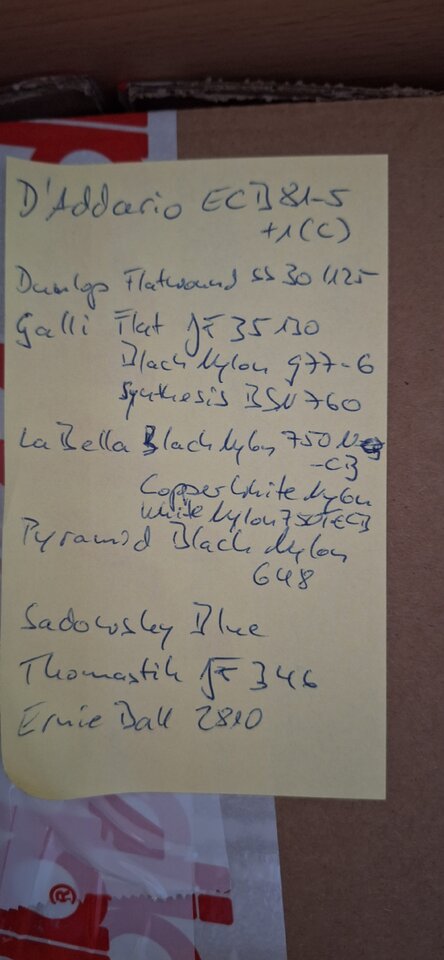 D'Addario ECB81-5
+1(C)
Dunlop Flatwound SS 30 1125
Galli Flat JF 35130
Black Nylon 977-6
Synthesis BSN 760
La Bella Black Nylon 750N
-CB
Copper White Nylon
White Nylon 750TECB
Pyramid Black Nylon
648
Sadowsky Blue
Thomastik JF 346
Ernie Ball 2810
®